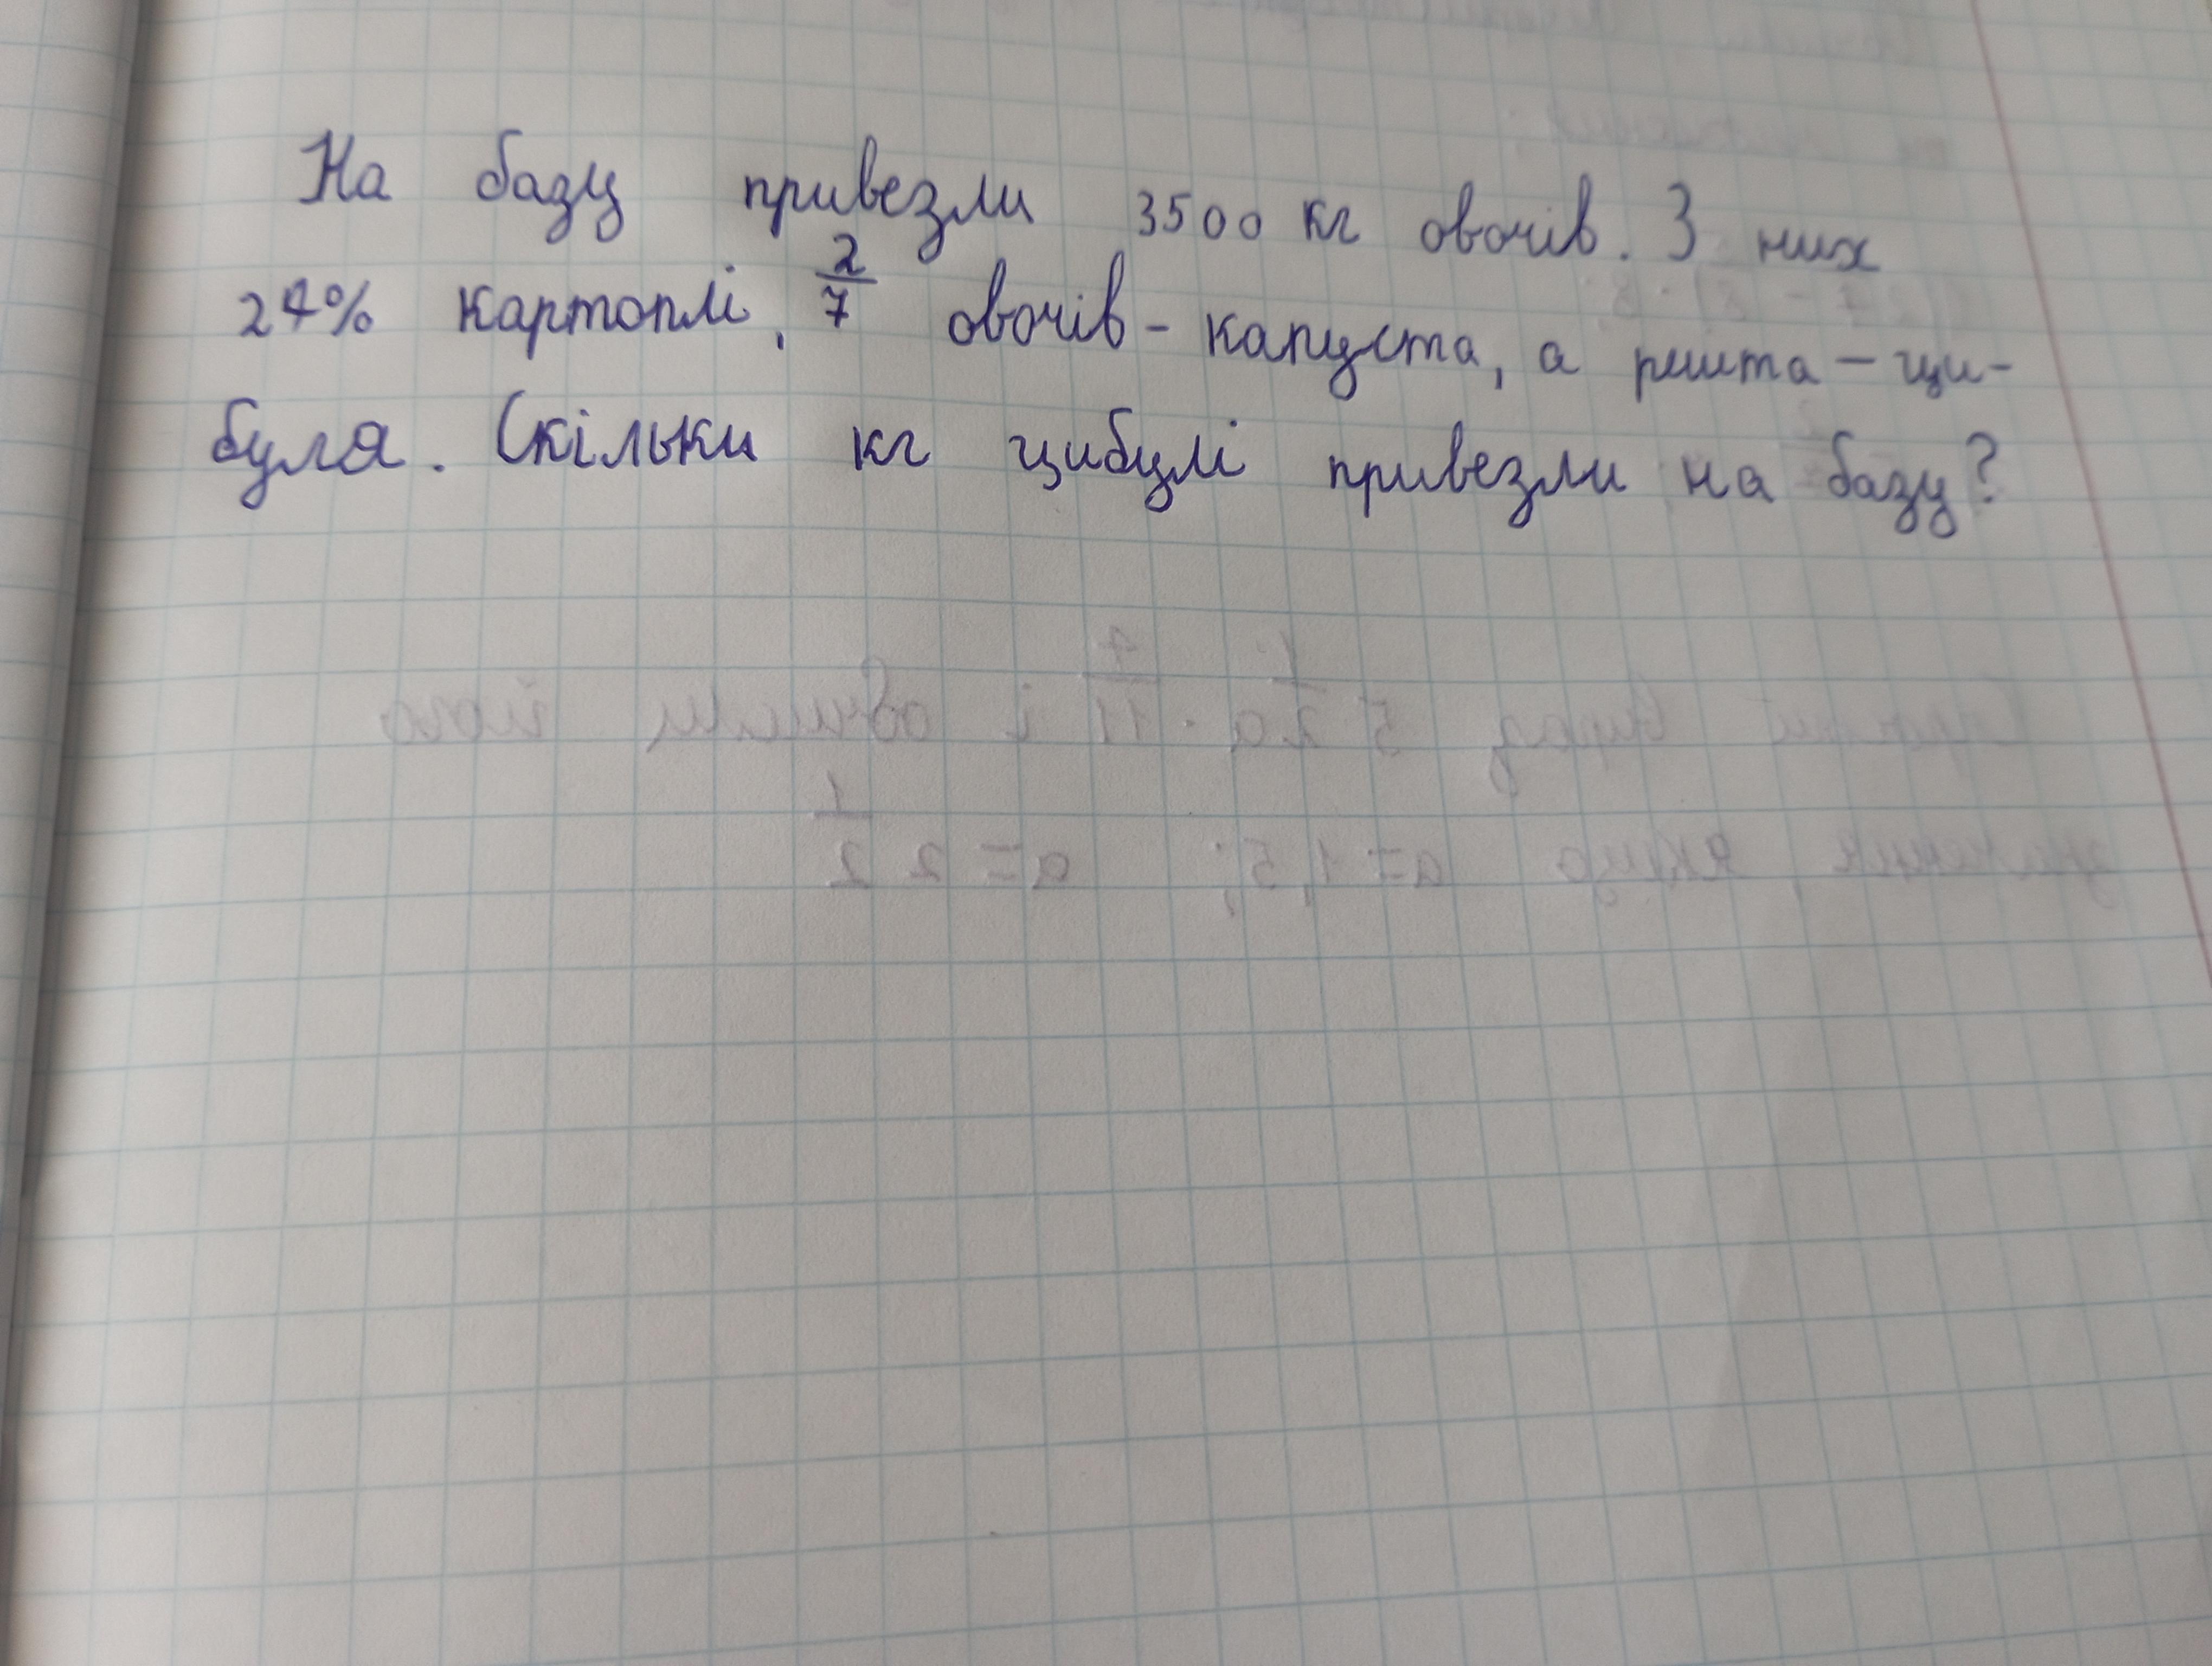 На базу привезли 3500 кг овочів. З них
24% картоплі, 2/7 овочів - капуста, а решта - ци-
буля. Скільки кг цибулі привезли на базу?